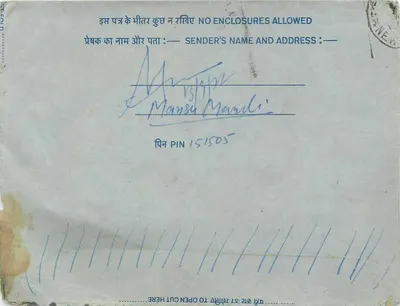 इस पत्र के भीतर कुछ न रखिए NO ENCLOSURES ALLOWED
प्रेषक का नाम और पता :— SENDER'S NAME AND ADDRESS :—
Mansa Mandi
पिन PIN 151505
TO OPEN CUT HERE